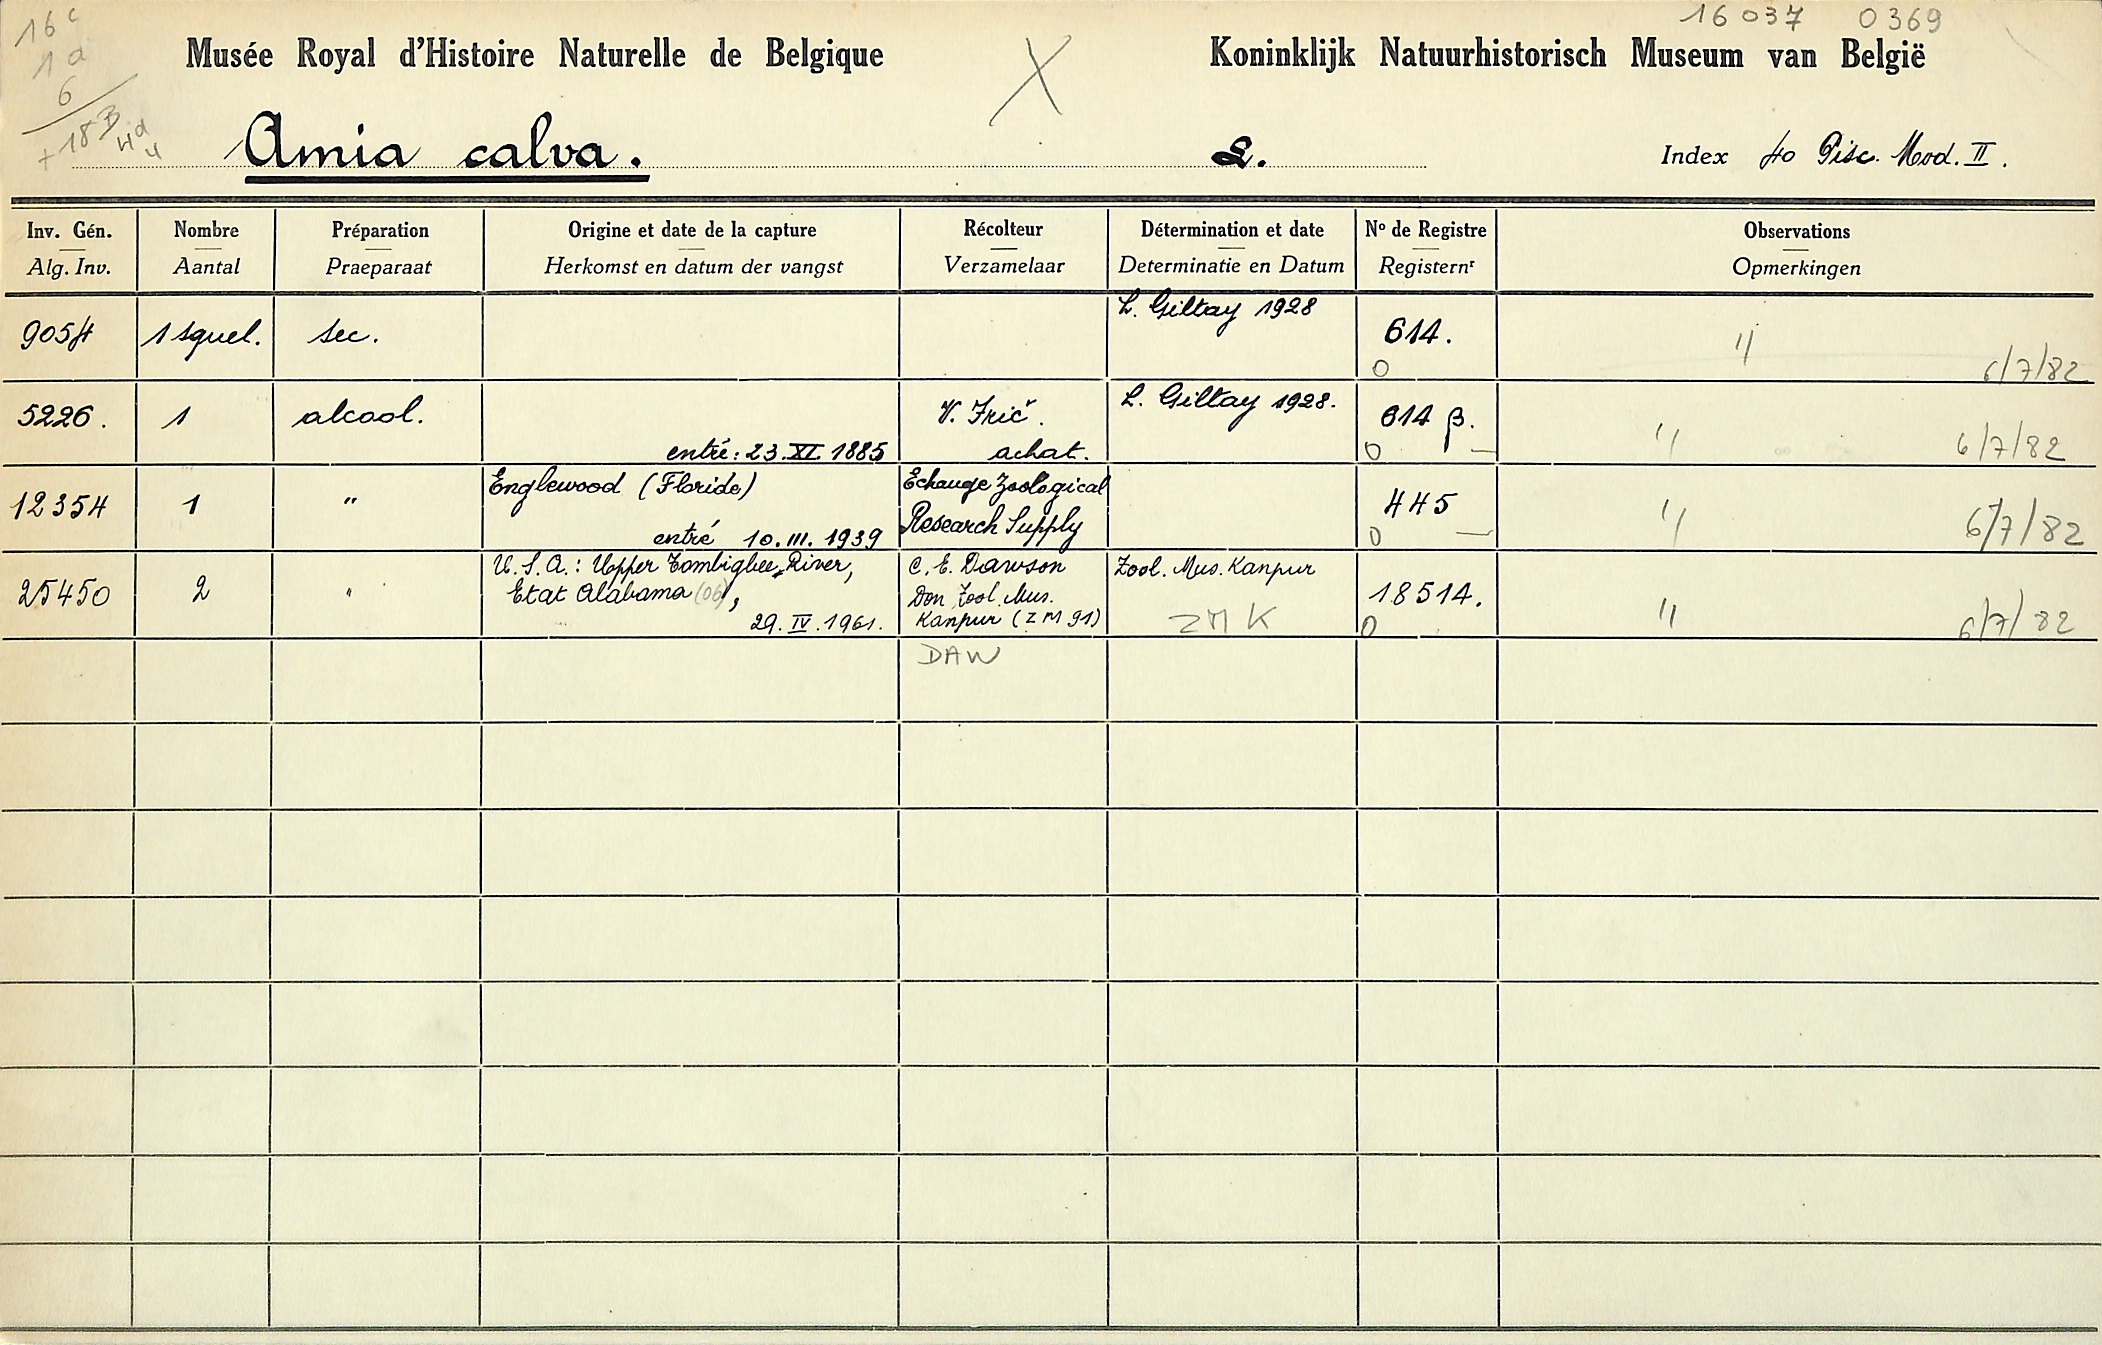 16 c
1 a
6
+ 18 B
4 d
4
16 037 0369
Musée Royal d'Histoire Naturelle de Belgique
X
Koninklijk Natuurhistorisch Museum van België
Amia calva. L. Index 40 Pisc. Mod. II.
Inv. Gén. Nombre Préparation Origine et date de la capture Récolteur Détermination et date N° de Registre Observations
Alg. Inv. Aantal Praeparaat Herkomst en datum der vangst Verzamelaar Determinatie en Datum Registernr Opmerkingen
L. Giltay 1928
9054 1 squel. sec. 614. "
0 6/7/82
L. Giltay 1928.
5226. 1 alcool. V. Frič. 614 β. "
entré: 23.XI.1885 achat. 0 — 6/7/82
Englewood (Floride) Echange Zoological
12354 1 " Research Supply 445 "
entré 10.III.1939 0 — 6/7/82
U.S.A.: Upper Tombigbee River, C. E. Dawson Zool. Mus. Kanpur
25450 2 " Etat Alabama (06), Don Zool. Mus. 18514. "
29.IV.1961. Kanpur (ZM 91) ZMK 0 6/7/82
DAW